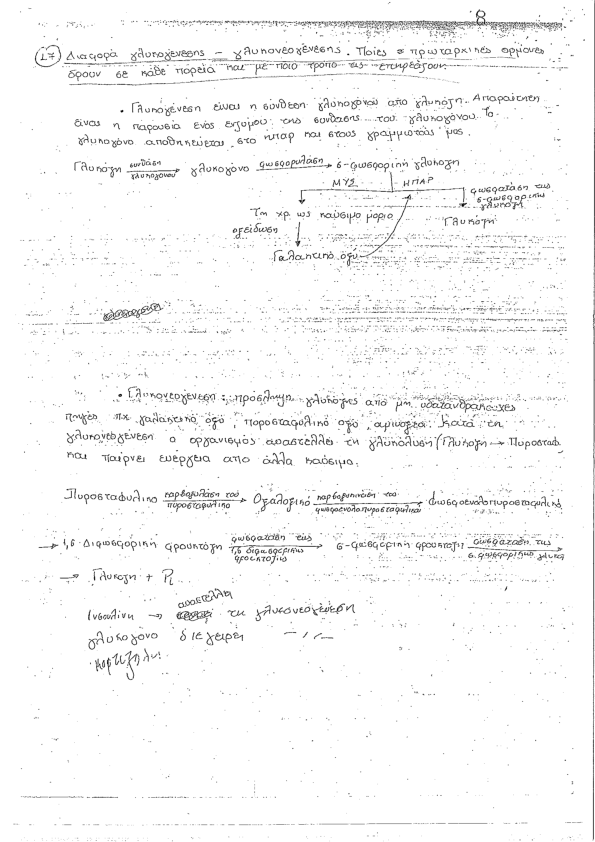 8
17) Διαφορά γλυκογένεσης - γλυκονεογένεσης. Ποιές οι πρωταρχικές ορμόνες
δρουν σε κάθε πορεία και με ποιο τρόπο τις επηρεάζουν.
• Γλυκογένεση είναι η σύνθεση γλυκογόνου από γλυκόζη. Απαραίτητη
είναι η παρουσία ενός ενζύμου της συνθάσης του γλυκογόνου. Το
γλυκογόνο αποθηκεύεται στο ήπαρ και στους γραμμωτούς μύς.
Γλυκόζη συνθάση γλυκογόνου γλυκογόνο φωσφορυλάση 6-φωσφορική γλυκόζη
ΜΥΣ ΗΠΑΡ
φωσφατάση της 6-φωσφορικής γλυκόζη
Την χρ. ως καύσιμο μόριο
Γλυκόζη
οξείδωση
Γαλακτικό οξύ
• Γλυκονεογένεση: πρόσληψη γλυκόζης από μη υδατανθρακούχες
πηγές πχ γαλακτικό οξύ, πυροσταφυλικό οξύ, αμινοξέα. Κατά τη
γλυκονεογένεση ο οργανισμός αναστέλλει τη γλυκόλυση (Γλυκόζη → Πυροσταφ
και παίρνει ενέργεια από άλλα καύσιμα.
Πυροσταφυλικο καρβοξυλάση του πυροσταφυλικο Οξαλοξικό καρβοξυκινάση του φωσφοενολοπυροσταφυλικού Φωσφοενολοπυροσταφυλικό
→ 1,6-Διφωσφορική φρουκτόζη φωσφατάση της 1,6 διφωσφορικής φρουκτόζης 6-φωσφορική φρουκτόζη φωσφατάση της 6-φωσφορικής γλυκόζ
→ Γλυκόζη + Pi
αναστέλλει
Ινσουλίνη → τη γλυκονεογένεση
γλυκογόνο διεγείρει -//-
κορτιζόλη